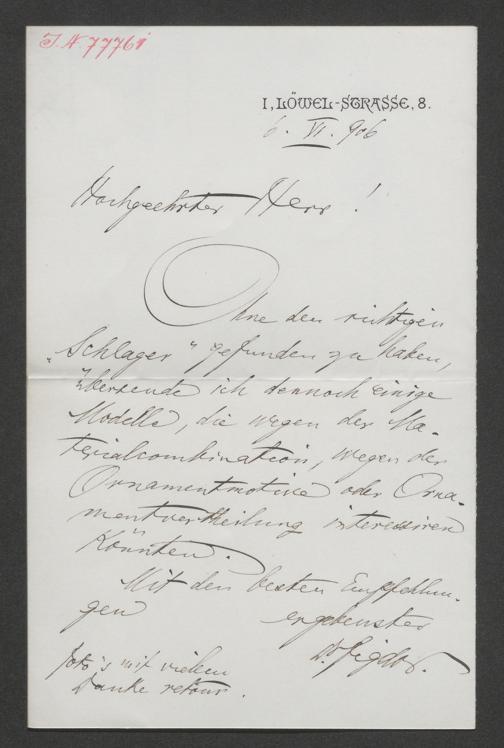 I. N. 77761
I, LÖWEL-STRASSE, 8.
6. VI. 906
Hochgeehrter Herr!
Ohne den richtigen
„Schlager" gefunden zu haben,
übersende ich dennoch einige
Modelle, die wegen der Ma-
terialcombination, wegen der
Ornamentmotive oder Orna-
mentvertheilung interessiren
könnten.
Mit den besten Empfehlun-
gen ergebenster
Dr Figdor.
Foto's mit vielem
Danke retour.